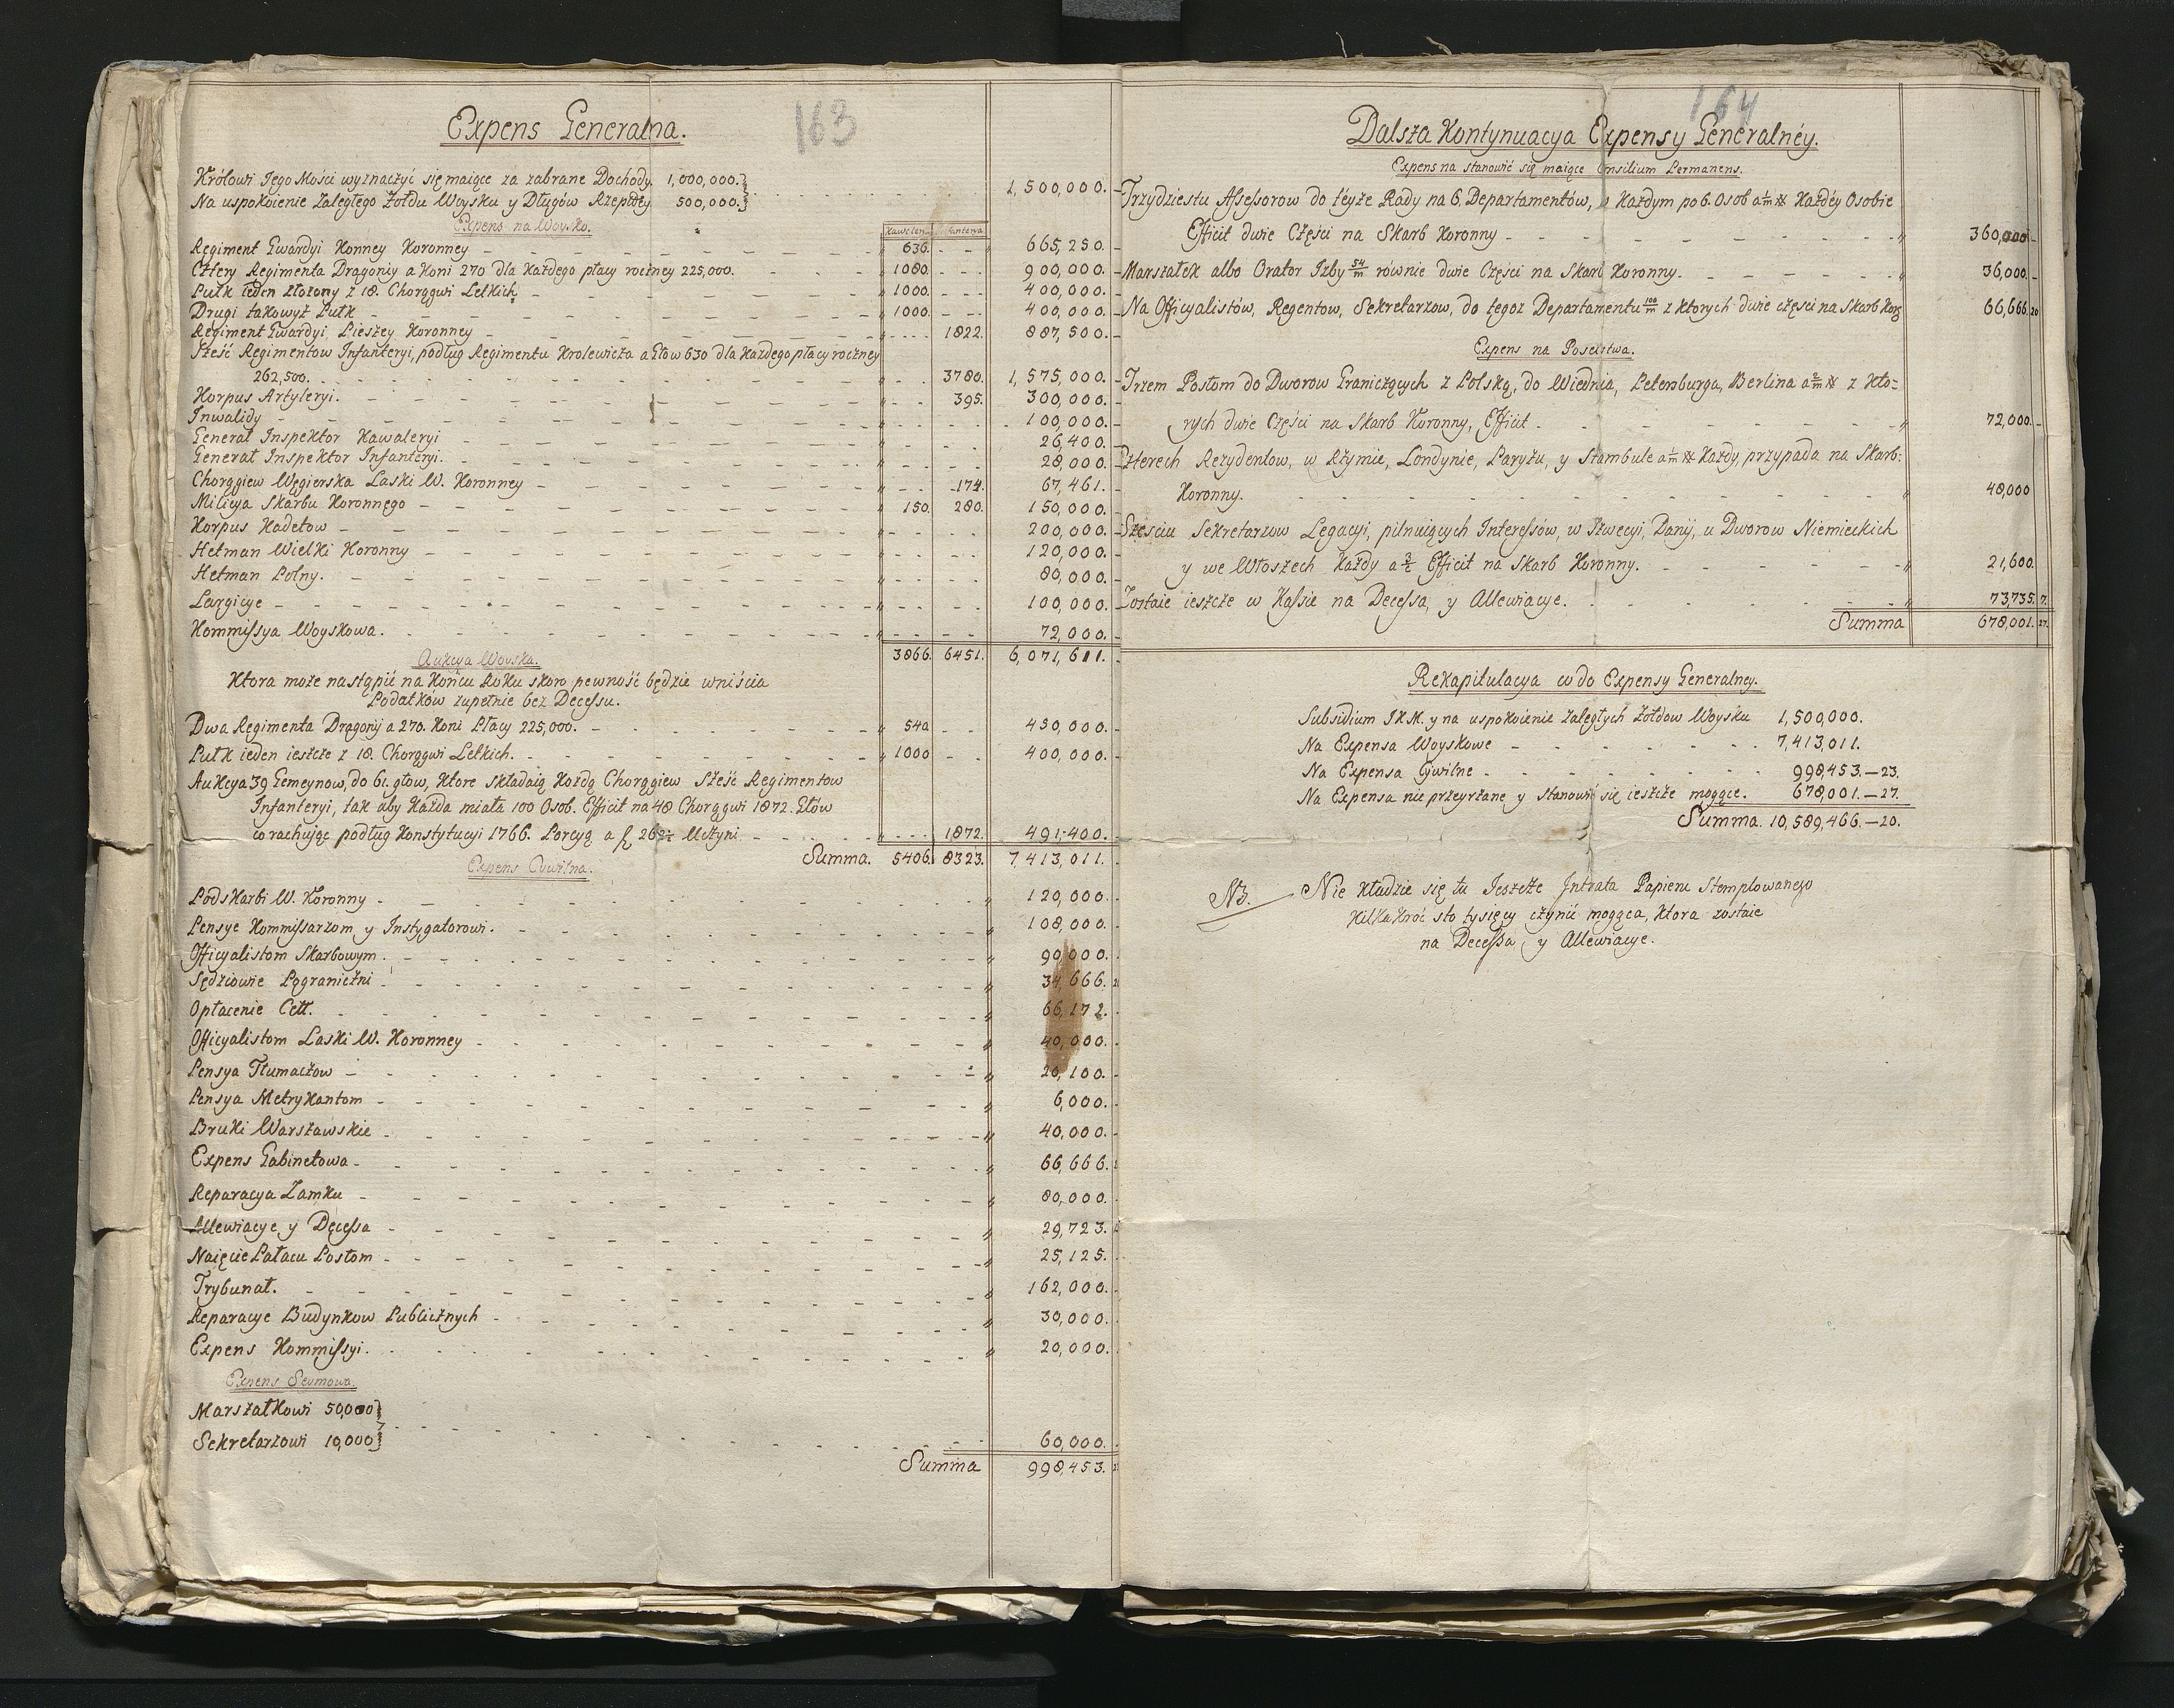 163
Expens Generalna.
Królowi Jego Mości wyznaczyć się maiące za zabrane Dochody. 1,000,000.
Na uspokoienie Zaległego Żołdu Woysku y Długów Rzeptey 500,000. 1,500,000.
Expens na Woysko.
Kawaler. Infanterya
Regiment Gwardyi Konney Koronney 636. 665,250.
Cztery Regimenta Dragoniy a Koni 270 dla każdego płacy roczney 225,000. 1080. 900,000.
Pułk ieden złożony z 18. Chorągwi Letkich 1000. 400,000.
Drugi takowyż Pułk 1000. 400,000.
Regiment Gwardyi Pieszey Koronney 1822. 887,500.
Sześć Regimentow Infanteryi, podług Regimentu Krolewicza a Głow 630 dla każdego płacy roczney
262,500. 3780. 1,575,000.
Korpus Artyleryi. 395. 300,000.
Inwalidy 100,000.
Generał Inspektor Kawaleryi 26,400.
Generał Inspektor Infanteryi. 28,000.
Chorągiew Węgierska Laski W. Koronney 174. 67,461.
Milicya Skarbu Koronnego 150. 280. 150,000.
Korpus Kadetow 200,000.
Hetman Wielki Koronny 120,000.
Hetman Polny. 80,000.
Largicye 100,000.
Kommissya Woyskowa. 72,000.
3866. 6451. 6,071,611.
Aukcya Woyska.
Ktora może nastąpić na Końcu Roku skoro pewność będzie wniścia
Podatków zupełnie bez Decessu.
Dwa Regimenta Dragonij a 270. Koni Płacy 225,000. 540 450,000.
Pułk ieden ieszcze z 18. Chorągwi Letkich. 1000 400,000.
Aukcya 39 Gemeynow, do 61. głow, ktore składaią Każdą Chorągiew Sześć Regimentow
Infanteryi, tak aby Każda miała 100 Osob. Efficit na 48 Chorągwi 1872. Głów
co rachując podług Konstytucyi 1766. Porcyą a 262 Uczyni 1872. 491,400.
Summa. 5406. 8323. 7,413,011.
Expens Cywilna.
Podskarbi W. Koronny 120,000.
Pensye Kommissarzom y Instygatorowi. 108,000.
Officyalistom Skarbowym. 90,000.
Sędziowie Pograniczni 34,666.
Opłacenie Cell. 66,172.
Officyalistom Laski W. Koronney 40,000.
Pensya Tłumaczow 20,100.
Pensya Metrykantom 6,000.
Bruki Warszawskie 40,000.
Expens Gabinetowa 66,666.
Reparacya Zamku 80,000.
Allewiacye y Decessa 29,723.
Naięcie Pałacu Posłom 25,125.
Trybunał. 162,000.
Reparacye Budynkow Publicznych 30,000.
Expens Kommissyi. 20,000.
Expens Seymowa.
Marszałkowi 50,000
Sekretarzowi 10,000 60,000.
Summa 998,453.
164
Dalsza Kontynuacya Expensy Generalnéy.
Expens na stanowić się maiące Consilium Permanens.
Trzydziestu Assessorow do téyże Rady na 6. Departamentów, w Każdym po 6. Osob a Każdéy Osobie
Efficit dwie Części na Skarb Koronny 360,000
Marszałek albo Orator Izby 54/m równie dwie Części na Skarb Koronny. 36,000.
Na Officyalistów, Regentow, Sekretarzow, do tegoz Departamentu 100/m z ktorych dwie części na Skarb Kor. 66,666. 20
Expens na Poselstwa.
Trzem Posłom do Dworow Graniczących z Polską, do Wiednia, Petersburga, Berlina a z kto-
rych dwie Części na Skarb Koronny, Efficit 72,000.
Czterech Rezydentow, w Rzymie, Londynie, Paryżu, y Stambule a Każdy, przypada na Skarb:
Koronny. 48,000
Sześciu Sekretarzow Legacyi, pilnuiących Interessów, w Szwecyi, Danij, u Dworow Niemieckich
y we Włoszech Każdy a Efficit na Skarb Koronny. 21,600.
Zostaie ieszcze w Kassie na Decessa, y Allewiacye. 73,735. 7.
Summa 678,001. 27.
Rekapitulacya co do Expensy Generalney.
Subsidium JKM. y na uspokoienie Zaległych Żołdow Woysku 1,500,000.
Na Expensa Woyskowe 7,413,011.
Na Expensa Cywilne 998,453.—23.
Na Expensa nie przeyrzane y stanowić się ieszcze mogące. 678,001.—27.
Summa. 10,589,466.—20.
NB. Nie kładzie się tu Jeszcze Intrata Papieru Stemplowanego
kilka kroć sto tysięcy czynić mogąca, ktora zostaie
na Decessa y Allewiacye.